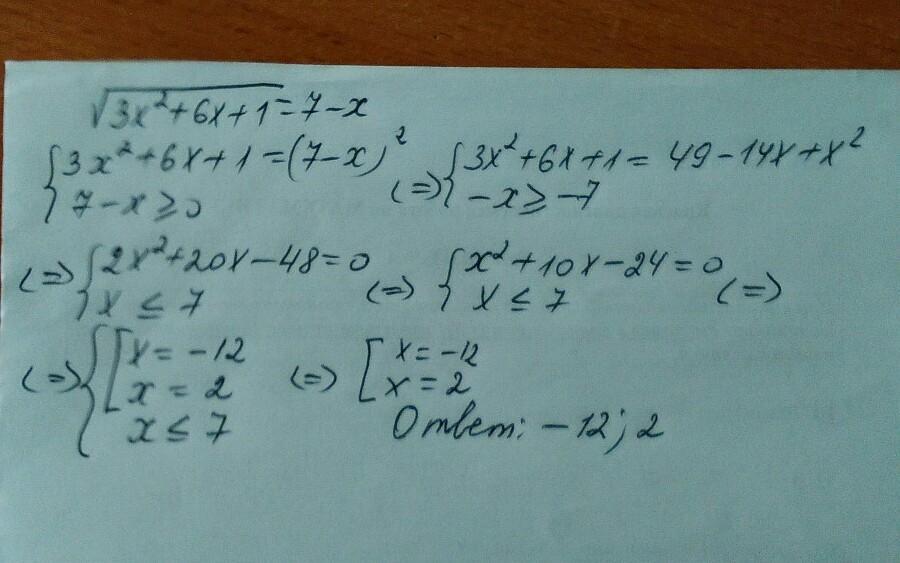 √3x²+6x+1 = 7-x
{3x²+6x+1=(7-x)² (=) {3x²+6x+1= 49-14x+x²
7-x≥0 -x≥-7
(=) {2x²+20x-48=0 (=) {x²+10x-24=0 (=)
x ≤ 7 x ≤ 7
(=) {[x = -12 (=) [x = -12
x = 2 x = 2
x ≤ 7 Ответ: -12; 2